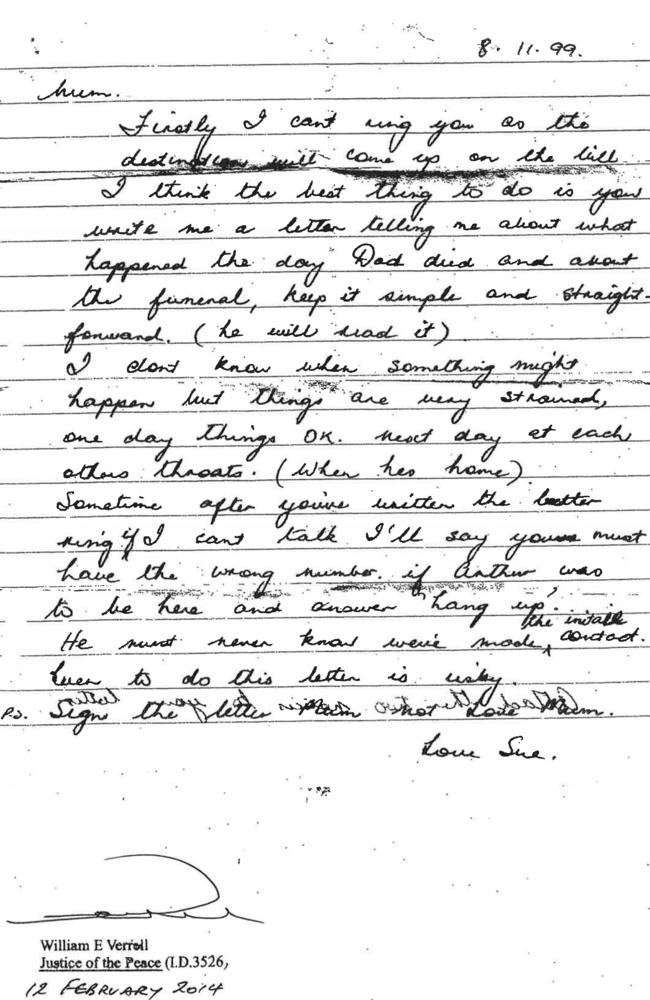 8. 11. 99.
Mum.
Firstly I cant ring you as the
destination will come up on the bill
I think the best thing to do is you
write me a letter telling me about what
happened the day Dad died and about
the funeral, keep it simple and straight-
forward. (he will read it)
I dont know when something might
happen but things are very strained,
one day things OK. next day at each
others throats. (when hes home)
Sometime after youve written the letter
ring if I cant talk I'll say you must
have the wrong number. if Arthur was
to be here and answer "hang up".
He must never know weve made the initale contact.
Even to do this letter is risky.
P.S. Sign the letter Mum not Love Mum.
Love Sue.
William E Verroll
Justice of the Peace (I.D.3526,
12 FEBRUARY 2014